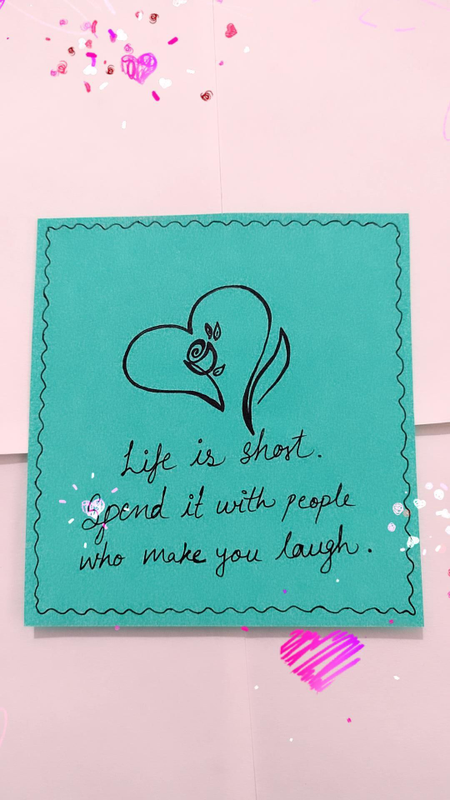 Life is short.
Spend it with people
who make you laugh.